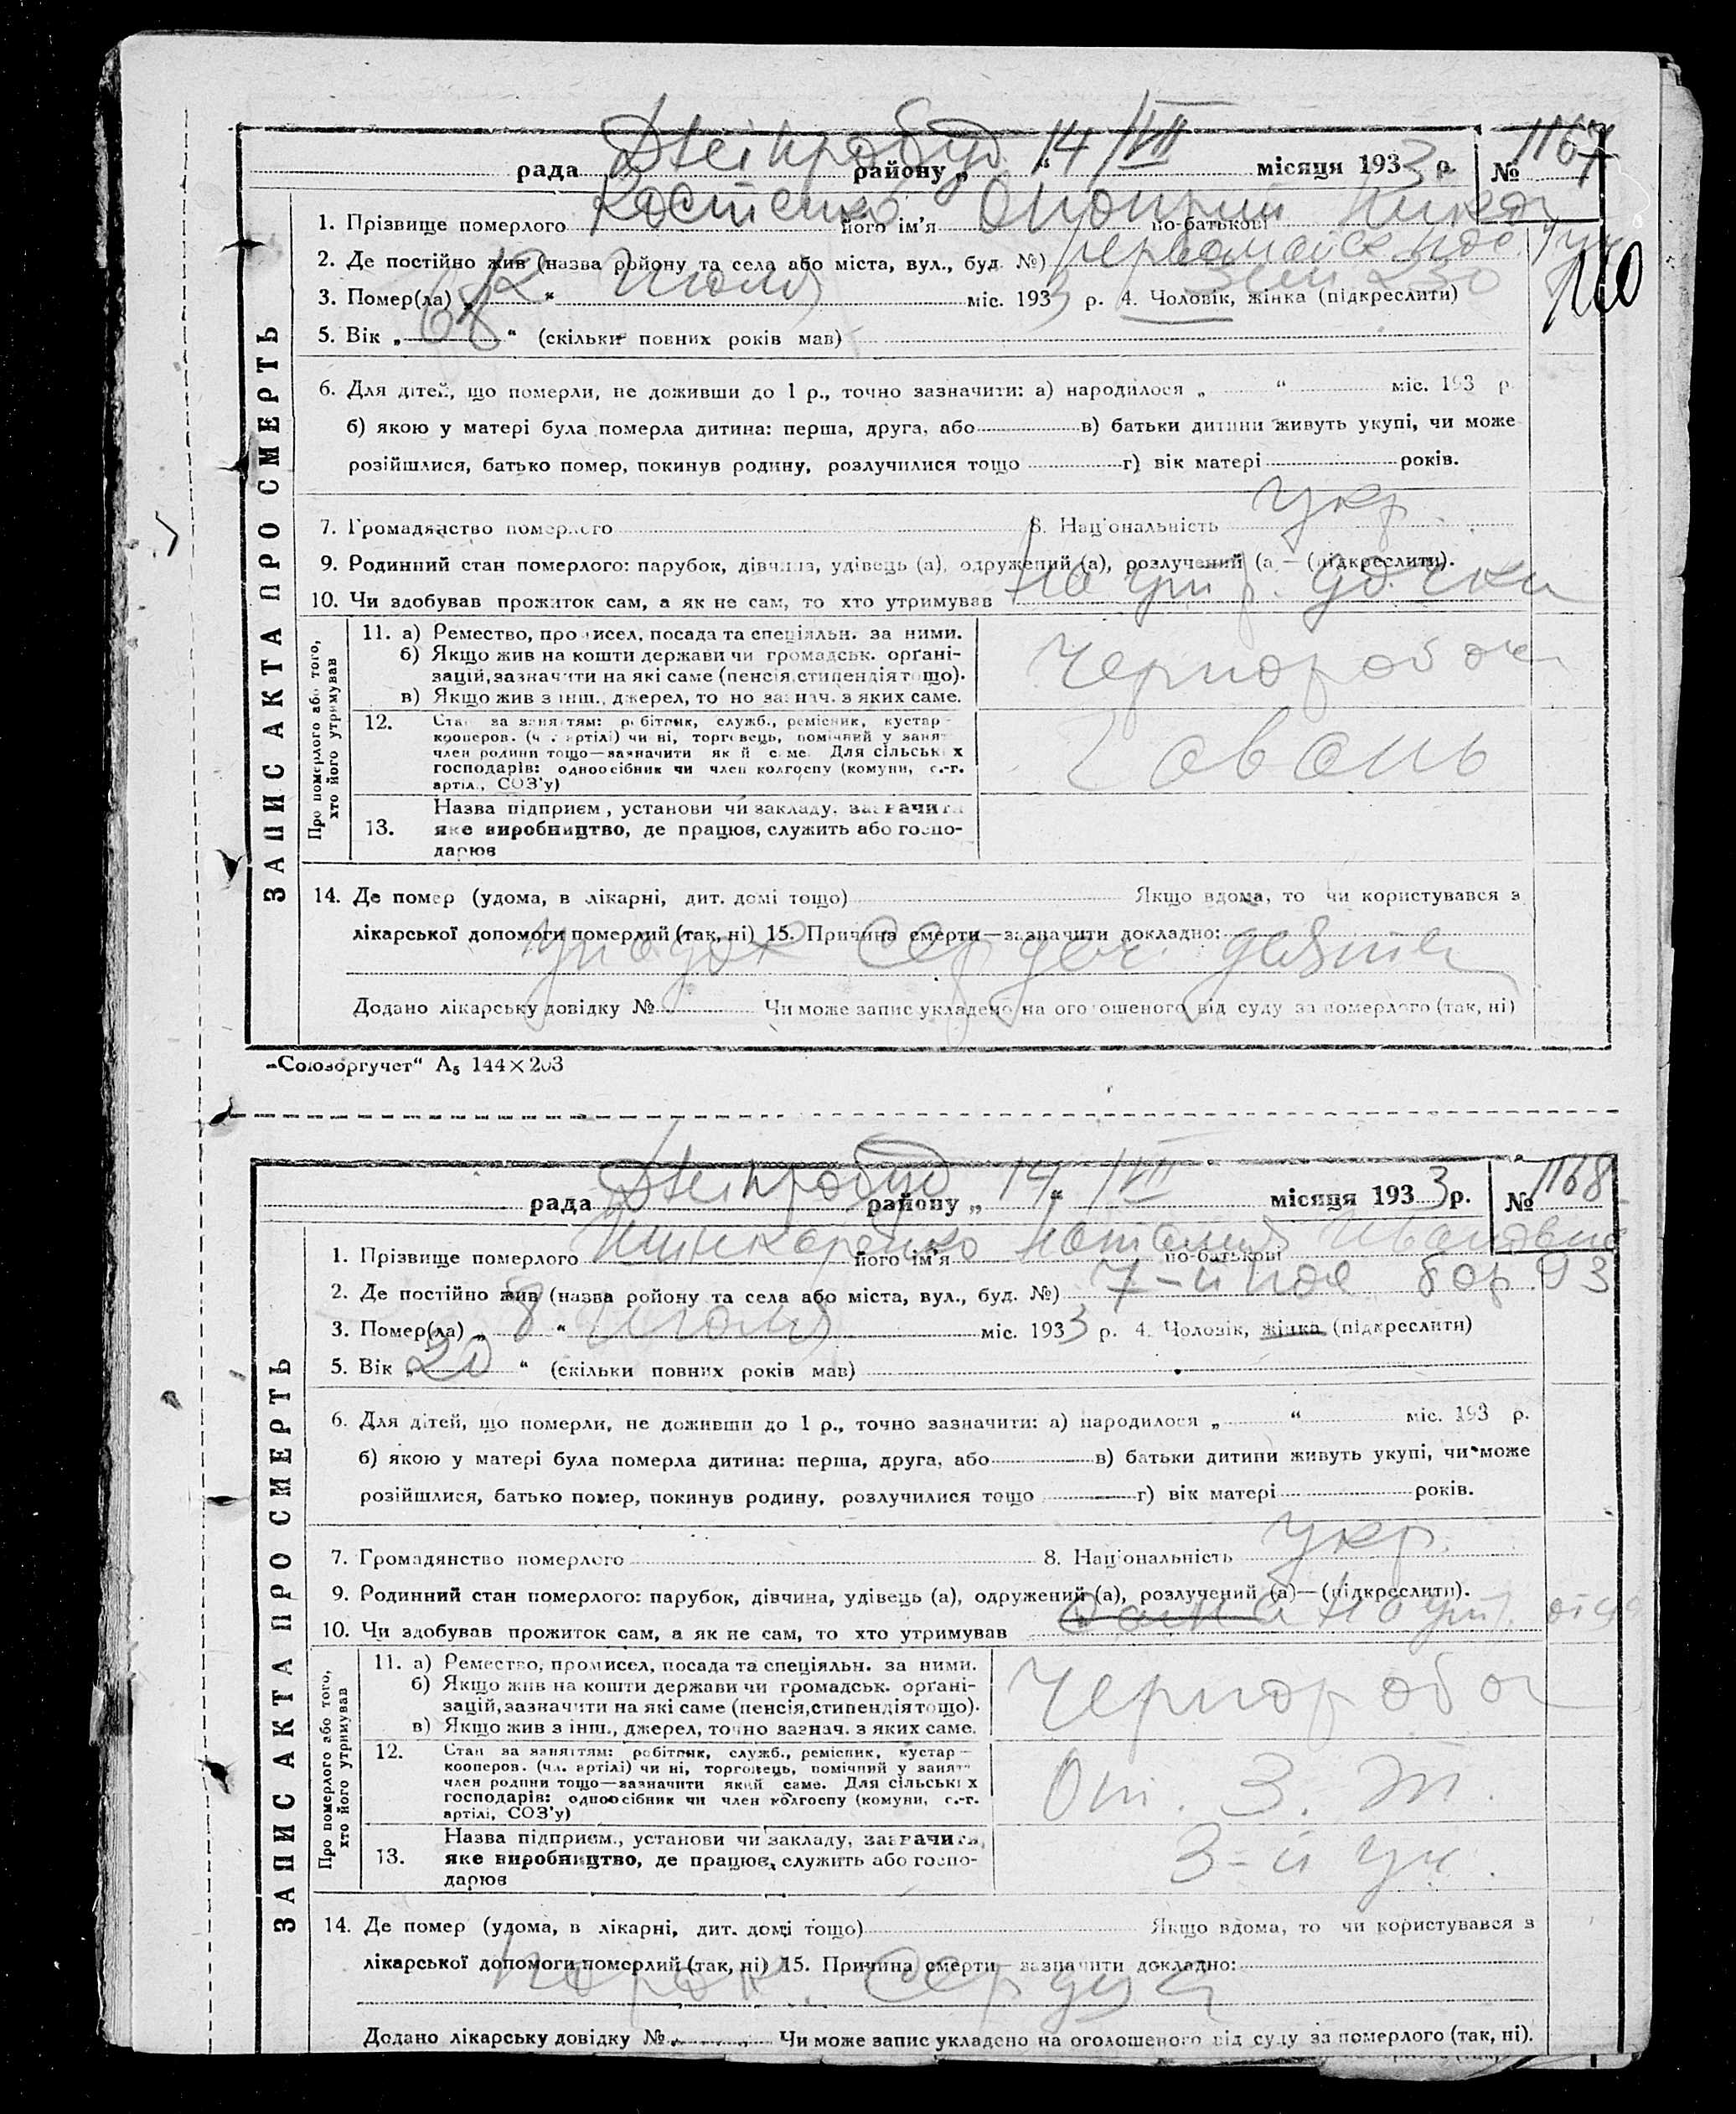 рада Дніпробуд району „ 14 “ /VII місяця 1933 р. № 1167
1. Прізвище померлого Костенко його ім'я по-батькові
2. Де постійно жив (назва ройону та села або міста, вул., буд. №)
3. Помер(ла) „ 12 “ Июля міс. 1933 р. 4. Чоловік, жінка (підкреслити)
5. Вік „ 68 “ (скільки повних років мав)
6. Для дітей, що померли, не доживши до 1 р., точно зазначити: а) народилося „ “ міс. 193 р.
б) якою у матері була померла дитина: перша, друга, або в) батьки дитини живуть укупі, чи може
розійшлися, батько помер, покинув родину, розлучилися тощо г) вік матері років.
7. Громадянство померлого 8. Національність укр.
9. Родинний стан померлого: парубок, дівчина, удівець (а), одружений (а), розлучений (а) — (підкреслити).
10. Чи здобував прожиток сам, а як не сам, то хто утримував на ірр. дочки
ЗАПИС АКТА ПРО СМЕРТЬ
Про померлого або того, хто його утримував
11. а) Ремество, промисел, посада та спеціяльн. за ними.
б) Якщо жив на кошти держави чи громадськ. орґані-
зацій, зазначити на які саме (пенсія, стипендія тощо).
в) Якщо жив з інш., джерел, точно зазнач. з яких саме.
Чернороб
12. Стан за заняттям: робітник, служб., ремісник, кустар —
кооперов. (чл. артілі) чи ні, торговець, помічний у занят
член родини тощо—зазначити який саме. Для сільських
господарів: одноосібник чи член колгоспу (комуни, с.-г.
артіл., СОЗ'у)
13. Назва підприєм., установи чи закладу, зазначити
яке виробництво, де працює, служить або госпо-
дарює
14. Де помер (удома, в лікарні, дит. домі тощо) Якщо вдома, то чи користувався з
лікарської допомоги померлий (так, ні) 15. Причина смерти—зазначити докладно:
упадок сердеч.
Додано лікарську довідку № Чи може запис укладено на оголошеного від суду за померлого (так, ні)
„Союзоргучет“ А5 144×203
рада Дніпробуд району „ 14 “ /VII місяця 1933 р. № 1168
1. Прізвище померлого Шинкаренко його ім'я Наталия по-батькові Ивановна
2. Де постійно жив (назва ройону та села або міста, вул., буд. №) 7-й пос. бар. 93
3. Помер(ла) „ 8 “ Июля міс. 1933 р. 4. Чоловік, жінка (підкреслити)
5. Вік „ 20 “ (скільки повних років мав)
6. Для дітей, що померли, не доживши до 1 р., точно зазначити: а) народилося „ “ міс. 193 р.
б) якою у матері була померла дитина: перша, друга, або в) батьки дитини живуть укупі, чи може
розійшлися, батько помер, покинув родину, розлучилися тощо г) вік матері років.
7. Громадянство померлого 8. Національність укр.
9. Родинний стан померлого: парубок, дівчина, удівець (а), одружений (а), розлучений (а)—(підкреслити).
10. Чи здобував прожиток сам, а як не сам, то хто утримував
ЗАПИС АКТА ПРО СМЕРТЬ
Про померлого або того, хто його утримував
11. а) Ремество, промисел, посада та спеціяльн. за ними.
б) Якщо жив на кошти держави чи громадськ. орґані-
зацій, зазначити на які саме (пенсія, стипендія тощо).
в) Якщо жив з інш., джерел, точно зазнач. з яких саме.
Чернороб
12. Стан за заняттям: робітник, служб., ремісник, кустар —
кооперов. (чл. артілі) чи ні, торговець, помічний у занят
член родини тощо—зазначити який саме. Для сільських
господарів: одноосібник чи член колгоспу (комуни, с.-г.
артілі, СОЗ'у)
От. З. Т.
13. Назва підприєм., установи чи закладу, зазначить,
яке виробництво, де працює, служить або госпо-
дарює
3-й уч.
14. Де помер (удома, в лікарні, дит. домі тощо) Якщо вдома, то чи користувався з
лікарської допомоги померлий (так, ні) 15. Причина смерти—зазначити докладно:
порок. сердца
Додано лікарську довідку № Чи може запис укладено на оголошеного від суду за померлого (так, ні).